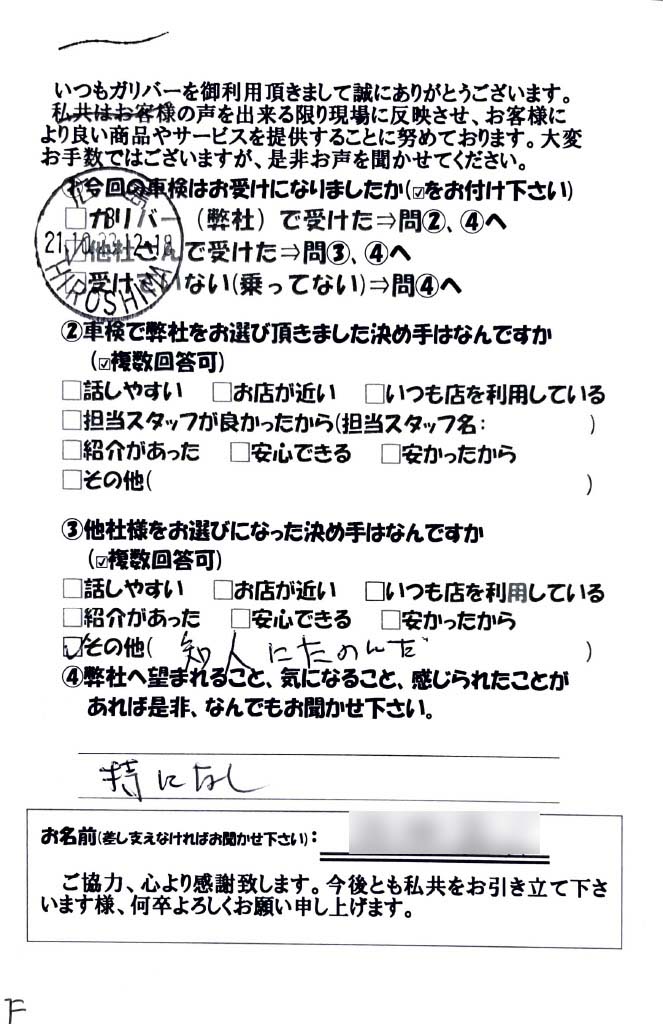 いつもガリバーを御利用頂きまして誠にありがとうございます。
私共はお客様の声を出来る限り現場に反映させ、お客様に
より良い商品やサービスを提供することに努めております。大変
お手数ではございますが、是非お声を聞かせてください。
①今回の車検はお受けになりましたか(☑をお付け下さい)
□ガリバー（弊社）で受けた⇒問②、④へ
☑他社さんで受けた⇒問③、④へ
□受けていない(乗ってない)⇒問④へ
広島
21.10.22 12-18
HIROSHIMA
②車検で弊社をお選び頂きました決め手はなんですか
(☑複数回答可)
□話しやすい □お店が近い □いつも店を利用している
□担当スタッフが良かったから(担当スタッフ名: )
□紹介があった □安心できる □安かったから
□その他( )
③他社様をお選びになった決め手はなんですか
(☑複数回答可)
□話しやすい □お店が近い □いつも店を利用している
□紹介があった □安心できる □安かったから
☑その他( 知人にたのんだ )
④弊社へ望まれること、気になること、感じられたことが
あれば是非、なんでもお聞かせ下さい。
特になし
お名前(差し支えなければお聞かせ下さい):
ご協力、心より感謝致します。今後とも私共をお引き立て下さ
います様、何卒よろしくお願い申し上げます。
F